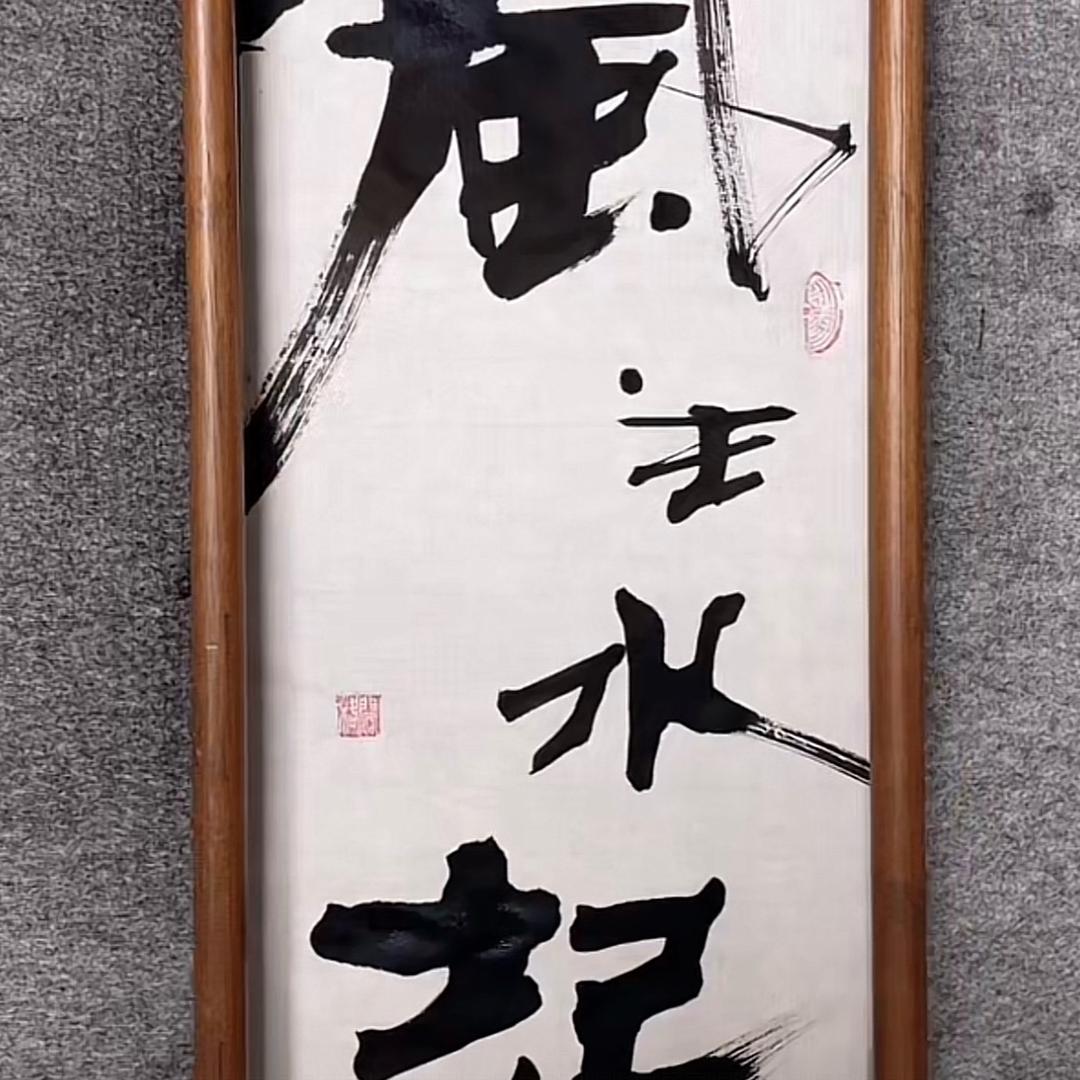 風
生
水
起